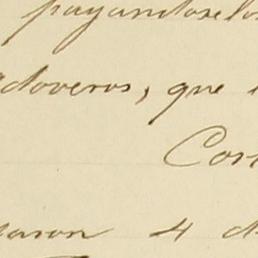 payandoselos
doveros, que
Cor
4 d